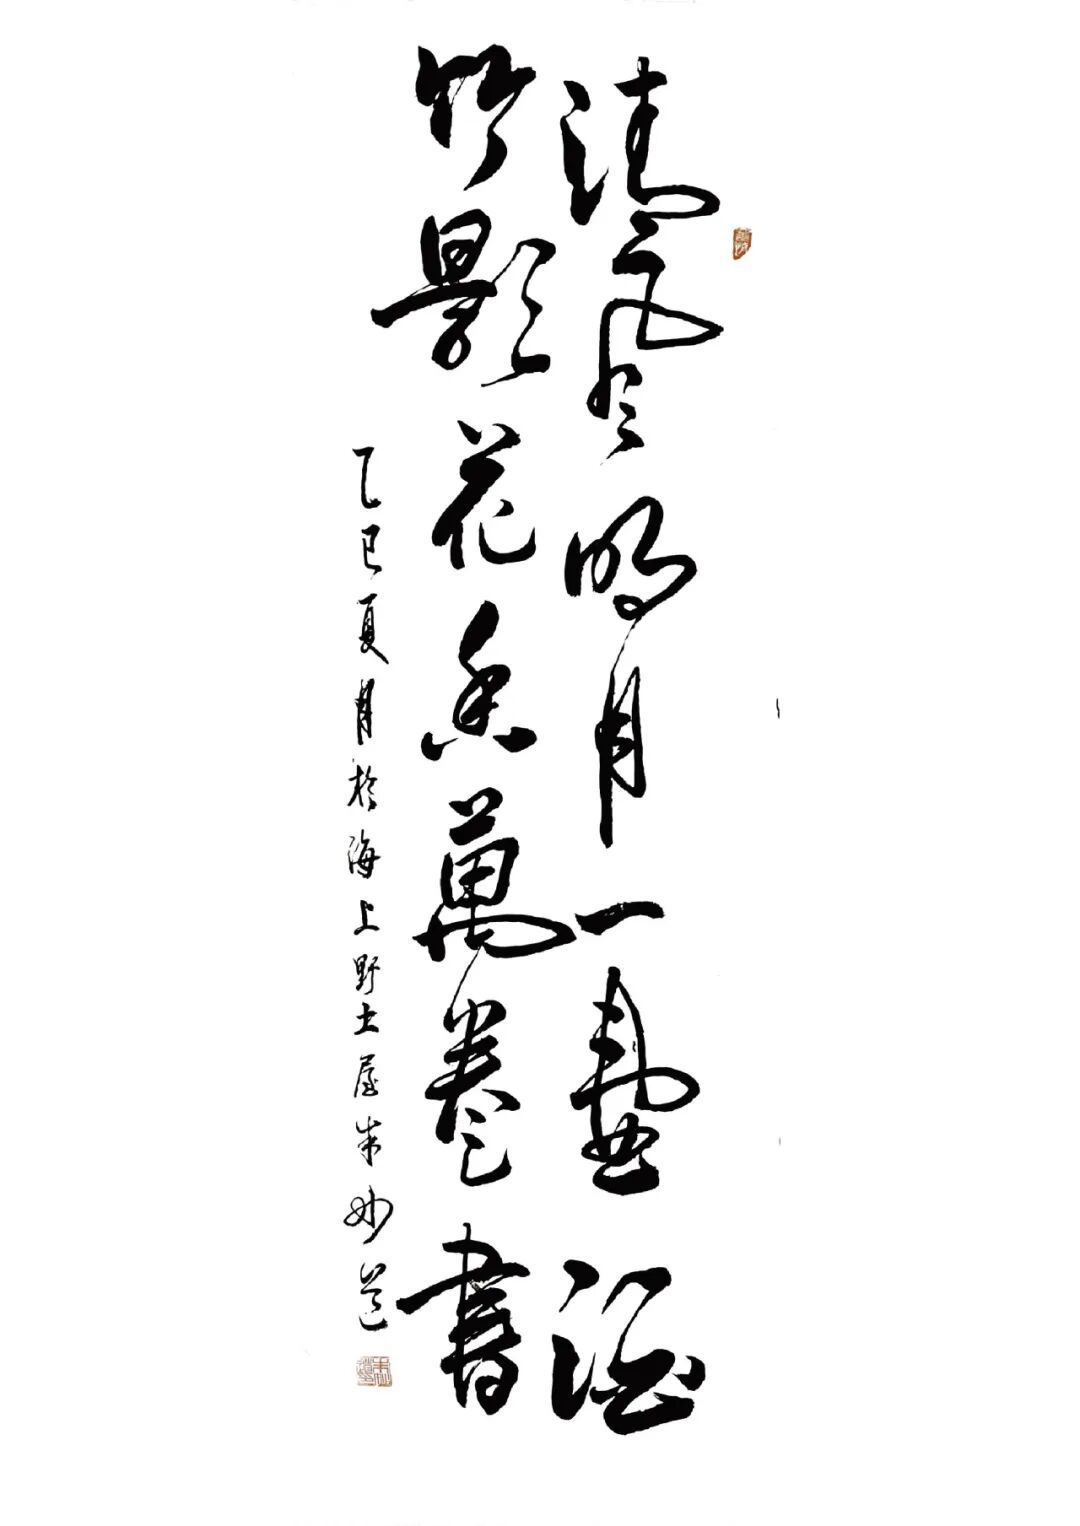 清風明月一壺酒
竹影花香萬卷書
乙巳夏月於海上野土屋朱妙道